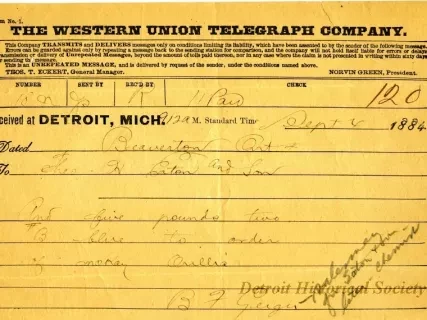 THE WESTERN UNION TELEGRAPH COMPANY.
This Company TRANSMITS and DELIVERS messages only on conditions limiting its liability, which have been assented to by the sender of the following message.
Errors can be guarded against only by repeating a message back to the sending station for comparison, and the company will not hold itself liable for errors or delays
in transmission or delivery of Unrepeated Messages, beyond the amount of tolls paid thereon, nor in any case where the claim is not presented in writing within sixty days
after sending the message.
This is an UNREPEATED MESSAGE, and is delivered by request of the sender, under the conditions named above.
THOS. T. ECKERT, General Manager. NORVIN GREEN, President.
NUMBER SENT BY REC'D BY CHECK
R 11 Paid 120
Received at DETROIT, MICH. M. Standard Time Sept 1884
Dated Beaverton Ont
To Theo H Eaton and Son
Five pounds two
B blue to order
of
B F Geiger
Detroit Historical Society